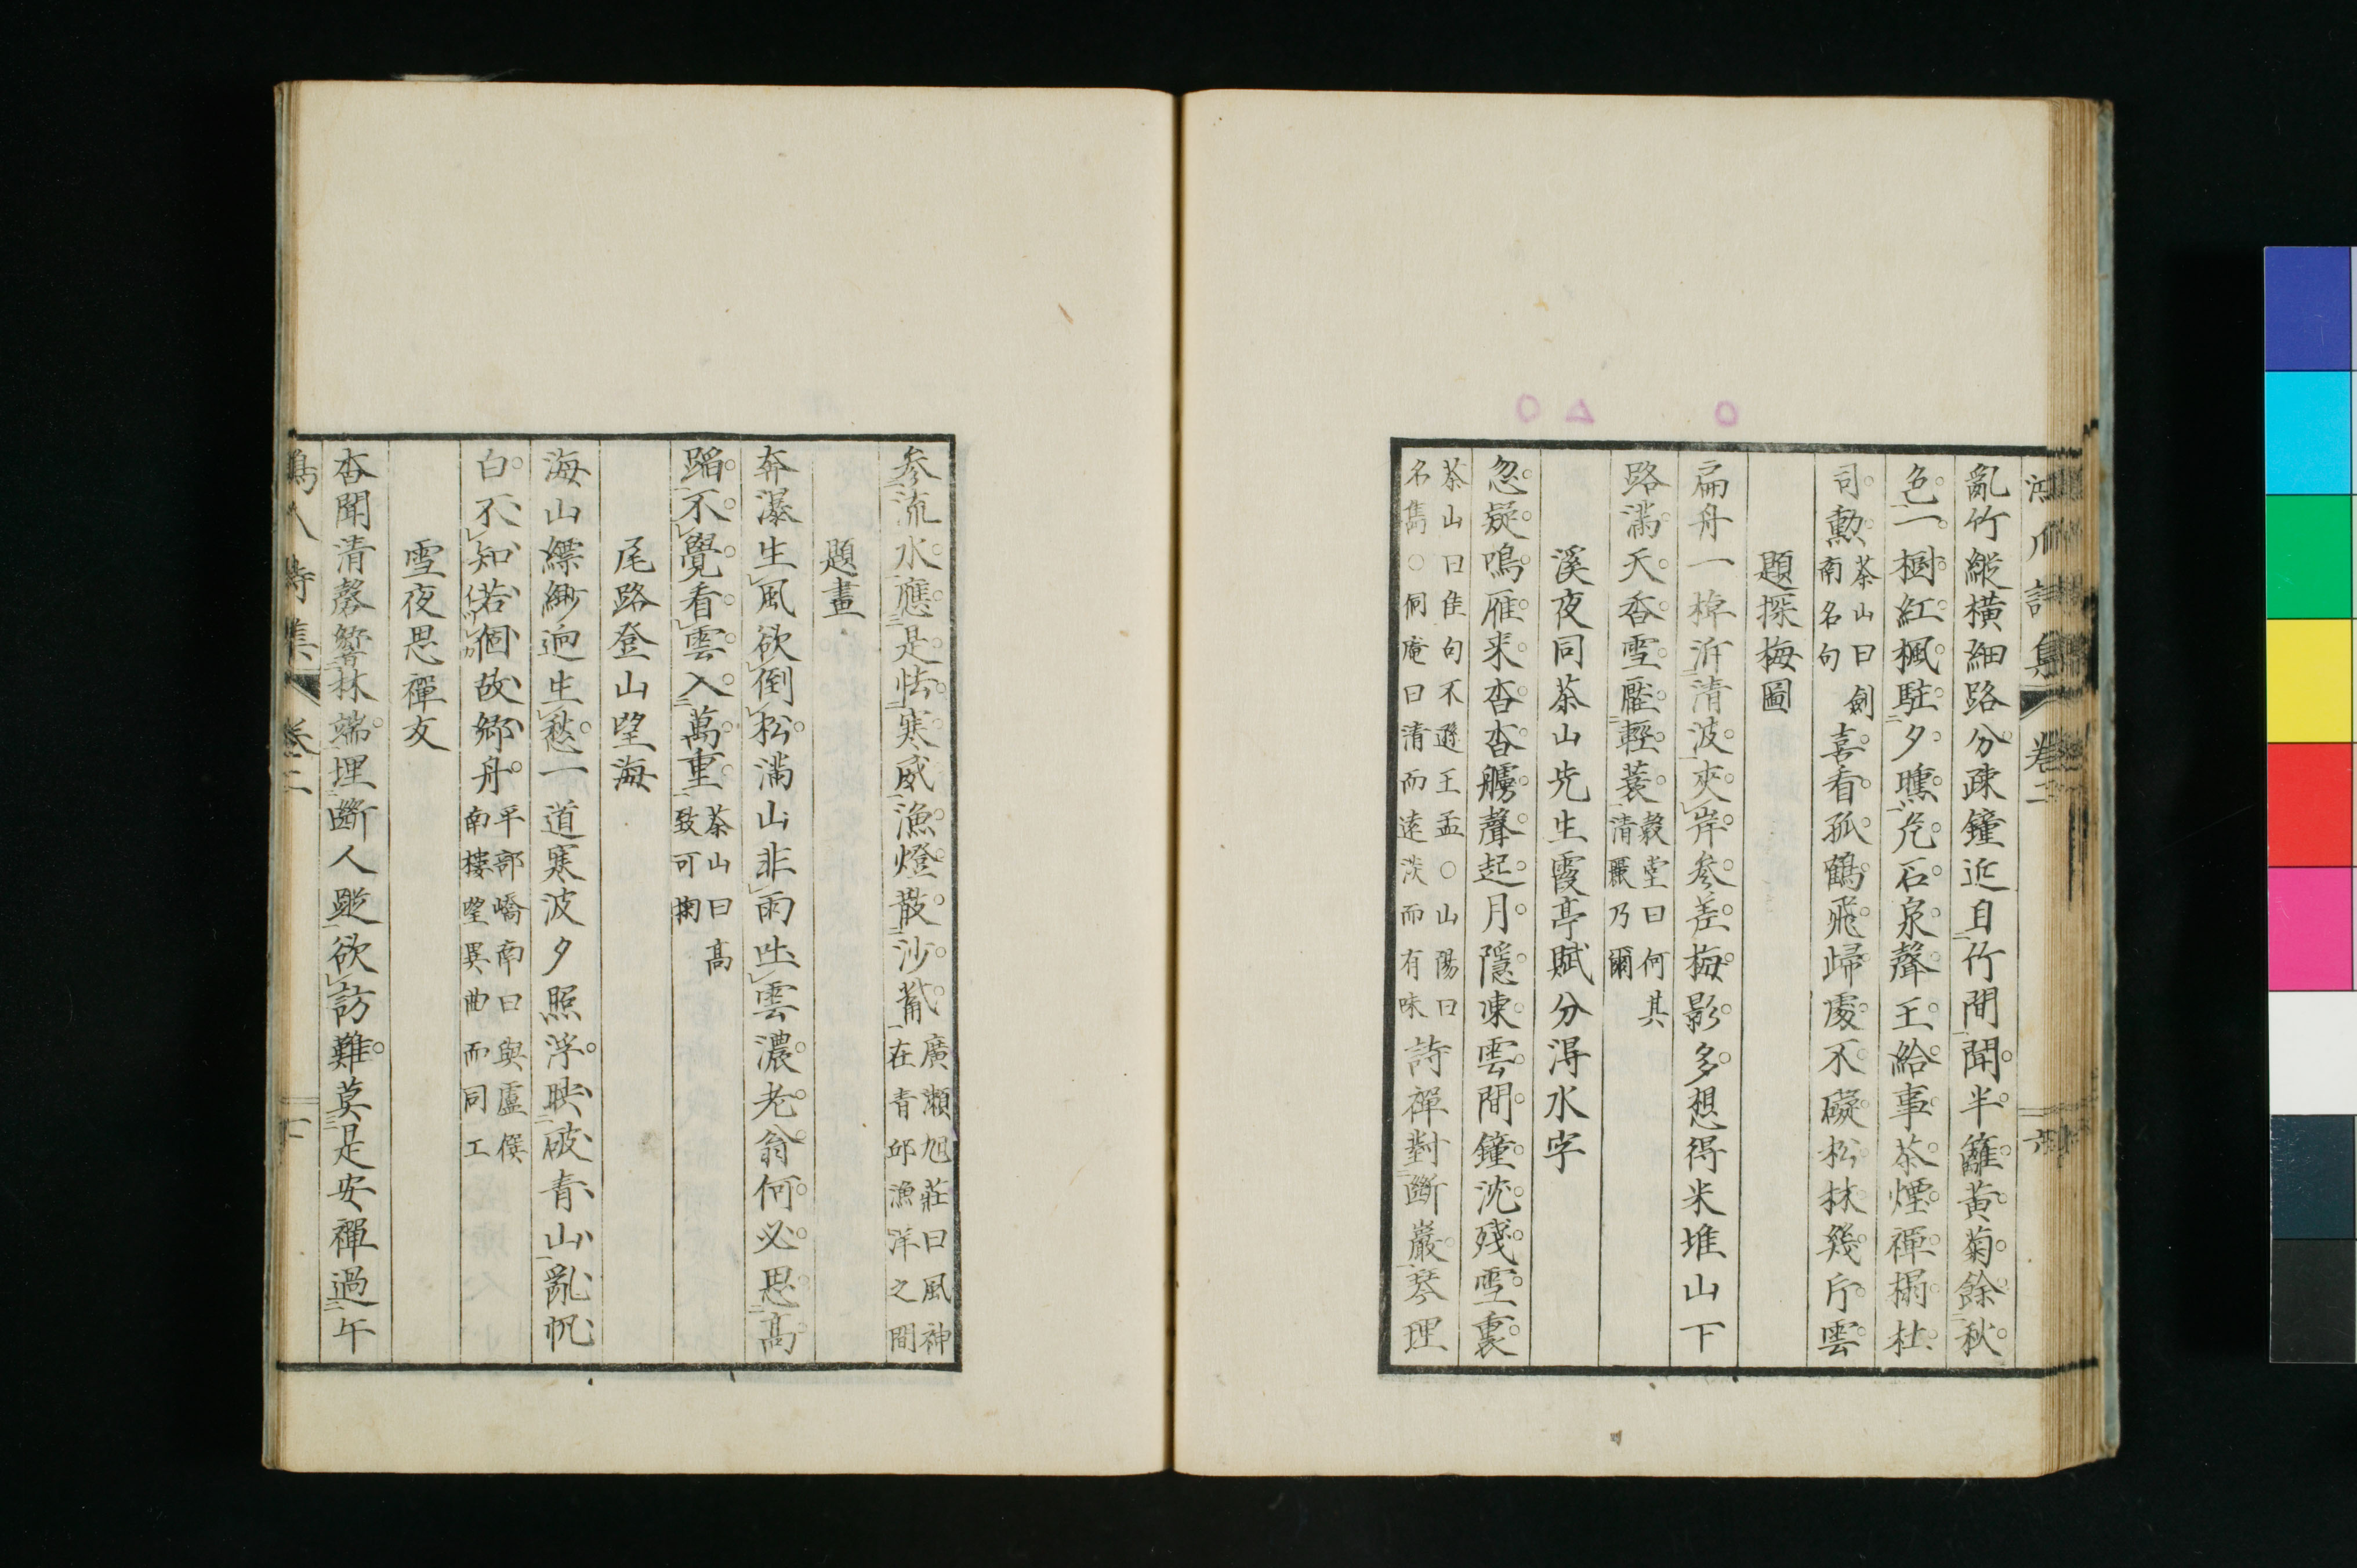 亂竹縱橫細路分疎鐘近自竹間聞半籬黃菊餘秋
色一樹紅楓駐夕曛危石泉聲王給事茶煙禪榻杜
司勲茶山曰劍南名句喜看孤鶴飛歸處不礙松林幾斤雲
題探梅圖
扁舟一棹泝清波夾岸參差梅影多想得米堆山下
路滿天香雪壓輕蓑穀堂曰何其清麗乃爾
溪夜同茶山先生霞亭賦分淂水字
忽疑鳴雁来杳杳艣聲起月隱凍雲間鐘沈殘雪裏
茶山曰佳句不遜王孟○山陽曰名雋○侗庵曰清而遠淡而有味詩禪對斷巖琴理
参流水應是怯寒威漁燈散沙觜廣瀨旭莊曰風神在青邱漁洋之間
題畫
奔瀑生風欲倒松滿山非雨吐雲濃老翁何必思高
蹈不覺看雲入萬重茶山曰高致可掬
尾路登山望海
海山縹緲逈生愁一道寒波夕照浮映破青山亂帆
白不知若個故鄉舟平部嶠南曰與盧僎南樓望異曲而同工
雪夜思禪友
杳聞清磬響林端埋斷人蹤欲訪難莫是安禪過午
卷二